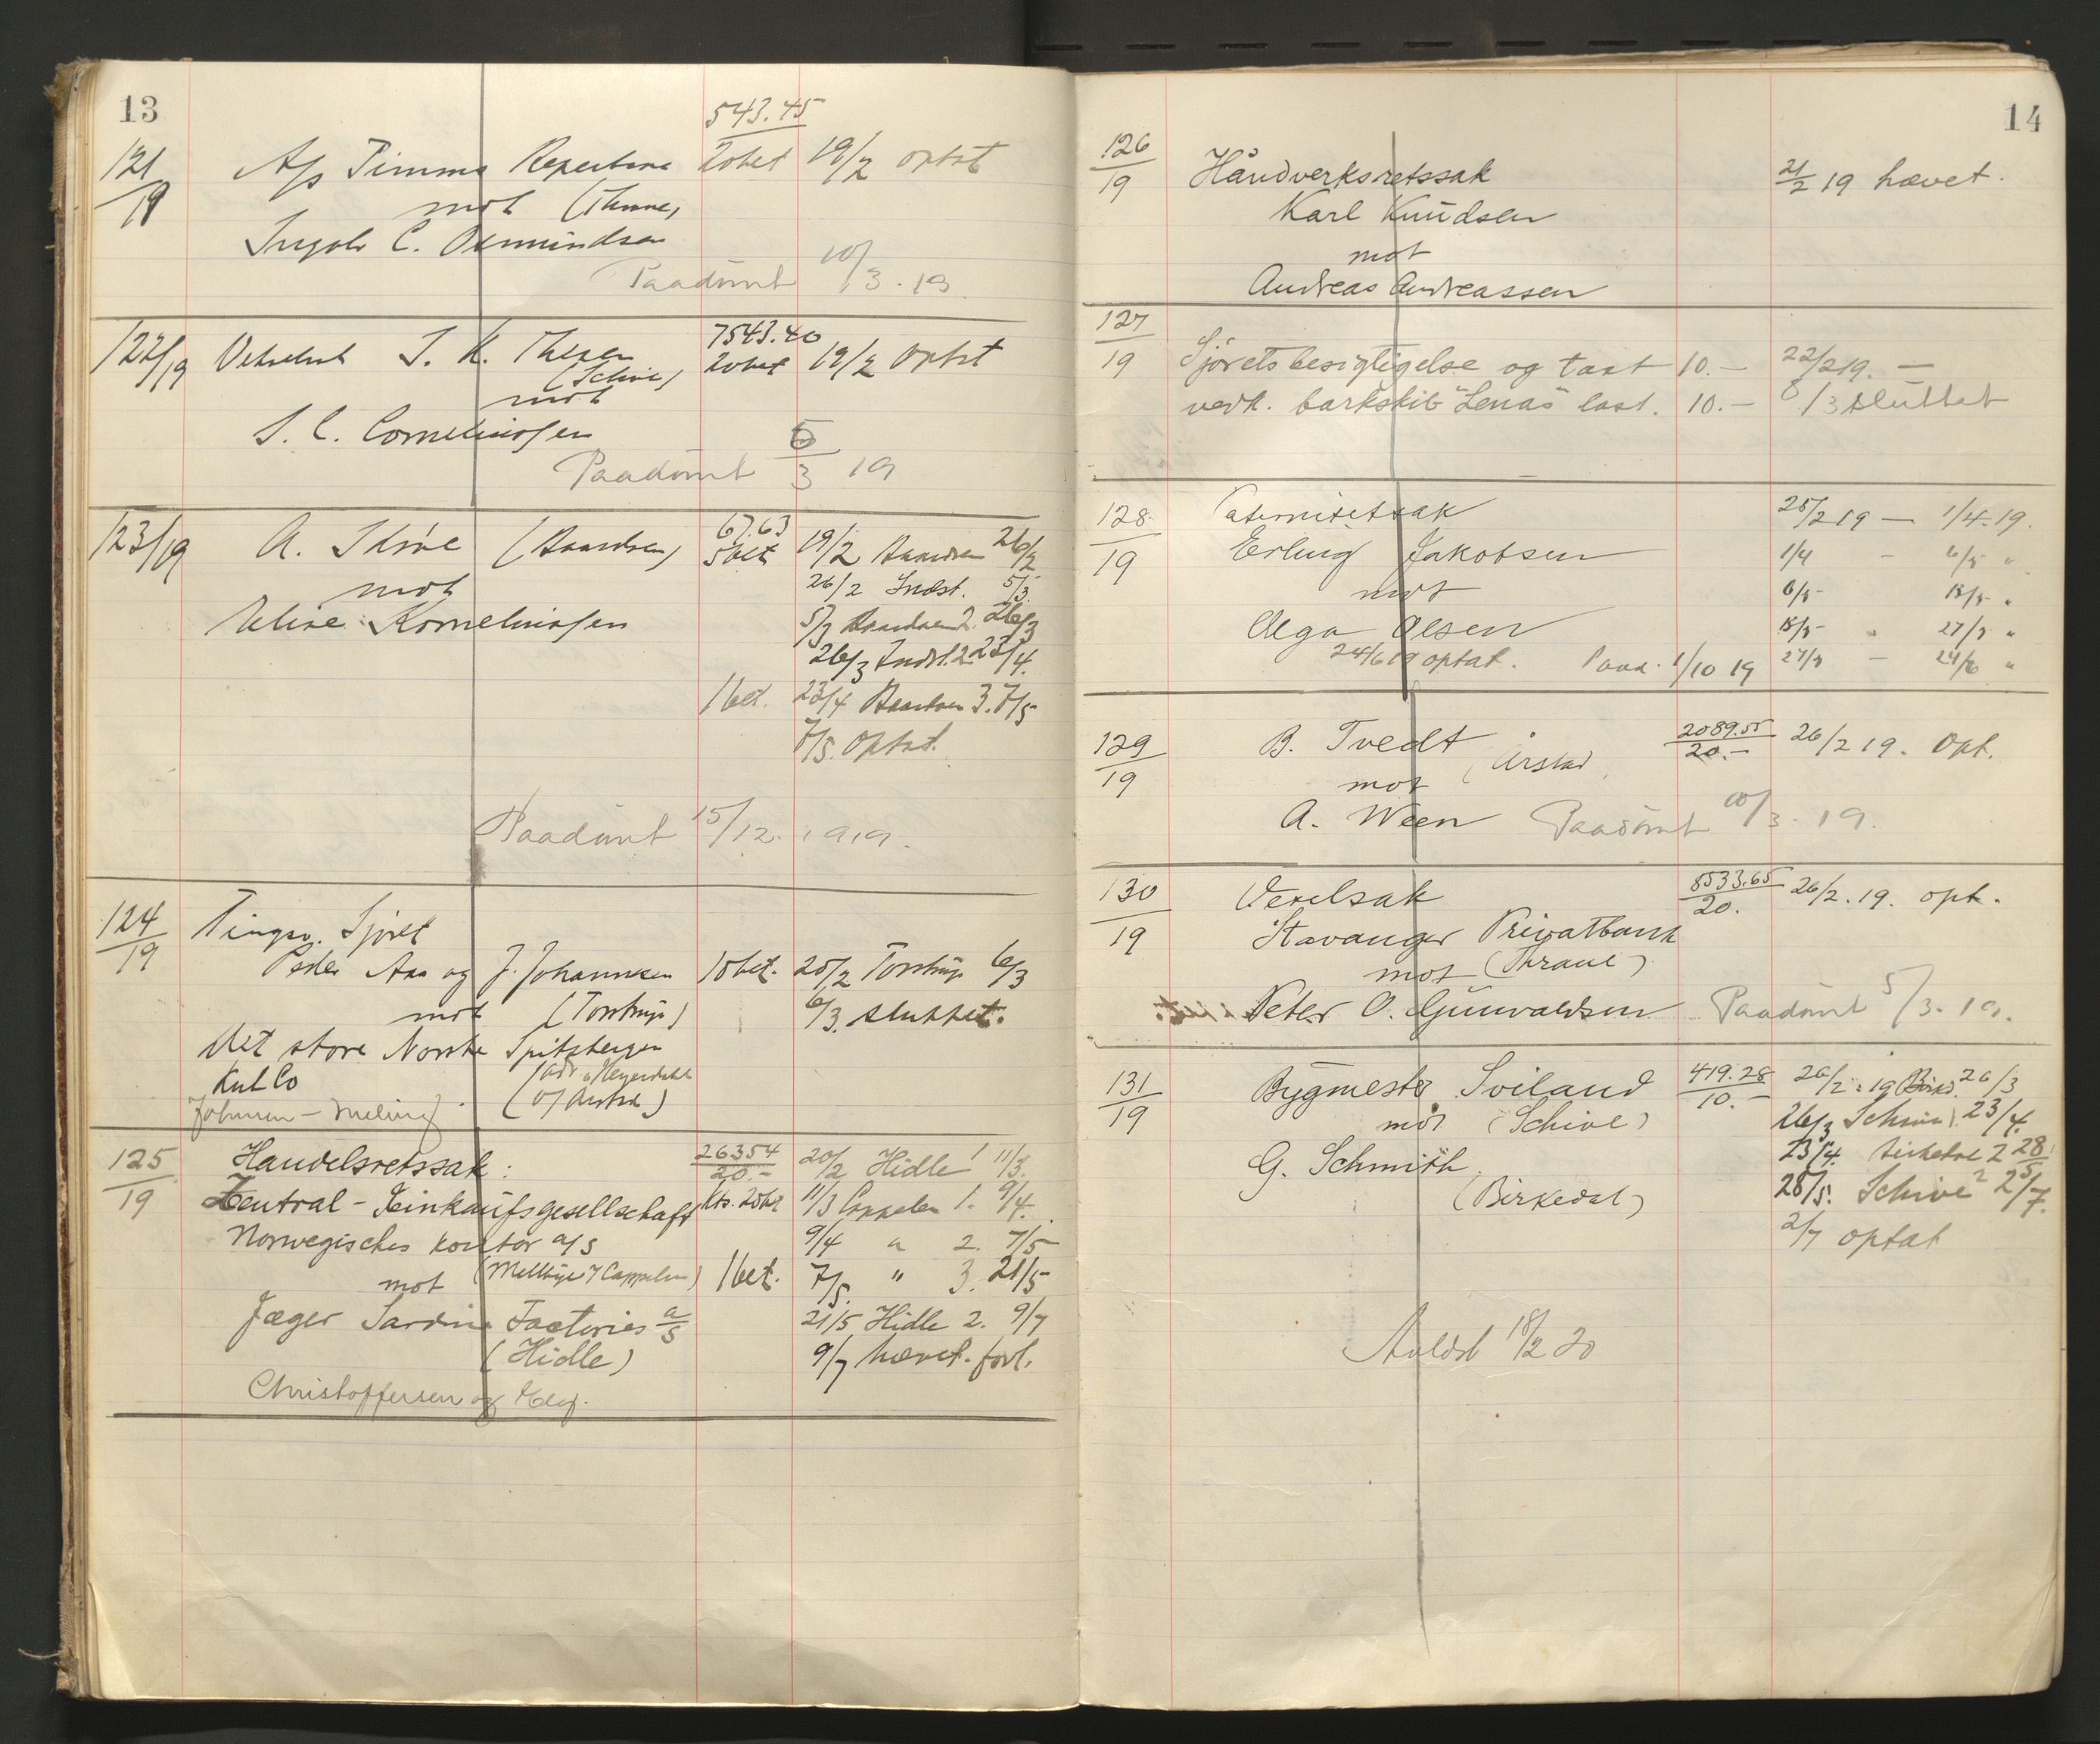 13
543.45
121/19 A/S Timms Reperbane 20bet 19/2 optat
mot (Thrane)
Ingolv C. Osmundsen
Paadömt 10/3. 19.
7543.40
122/19 Vekselsak S. K. Thesen 20bet 19/2 optat
(Schive)
mot
S. C. Corneliussen
Paadömt 5/3 19
67.63
123/19 A. Skive (Baardsen) 5bet 19/2 Baardsen 26/2
mot 26/2 Indst. 5/3.
Eline Korneliussen 5/3 Baardsen 2. 26/3
26/3 Indst. 2 23/4.
1 bet. 23/4 Baardsen 3. 7/5
7/5. optat.
Paadömt 15/12. 1919.
124/19 Tingsv. Sjöret
Peder Aas og J. Johannesen 10bet. 20/2 Torstrup 6/3
mot (Torstrup) 6/3. sluttet.
Det store Norske Spitsbergen
Kul Co (adv. Heyerdahl
Johnsen – Meling v/ )
125/19 Handelsretssak: 26354/20.- 20/2 Hidle 1 11/3.
Zentral-Einkaufsgesellschaft 20bet 11/3 Cappelen 1. 9/4.
Norwegisches kontor a/s 9/4 " 2. 7/5
mot (Mellbye v/ Cappelen) 1 bet. 7/5. " 3. 21/5
Jæger Sardine Factories a/s 21/5 Hidle 2. 9/7
(Hidle) 9/7 hævet. forl.
Christoffersen og
14
126/19 Håndverksretssak 21/2 19 hævet.
Karl Knudsen
mot
Andreas Andreassen
127/19 Sjöretsbesigtigelse og taxt 10.— 22/2 19. —
vedk. barkskib "Lenas" last. 10.— 8/3 sluttet
128/19 Paternitetssak 25/2 19 — 1/4-19.
Erling Jakobsen 1/4 - 6/5 "
mot 6/5 - 15/5 "
Olga Olsen 15/5 - 27/5 "
24/6 19 optat. Paad. 1/10 19 27/5 — 24/6 "
129/19 B. Tvedt 2089.55/20.— 26/2 19. Opt.
mot (Årstad)
A. Ween Paadömt 10/3. 19.
130/19 Vexelsak 8533.65/20. 26/2. 19. opt.
Stavanger Privatbank
mot (Thrane)
Peter O. Gunvaldsen Paadömt 5/3. 19.
131/19 Bygmester Sviland 419.28/10.— 26/2. 19 Birked. 26/3
mot (Schive) 26/3 Schive 1. 23/4.
G. Schmith. 23/4. Birkedal 2 28/5
(Birkedal) 28/5. Schive 2 2/7.
2/7 optat
Avldst 18/2 20